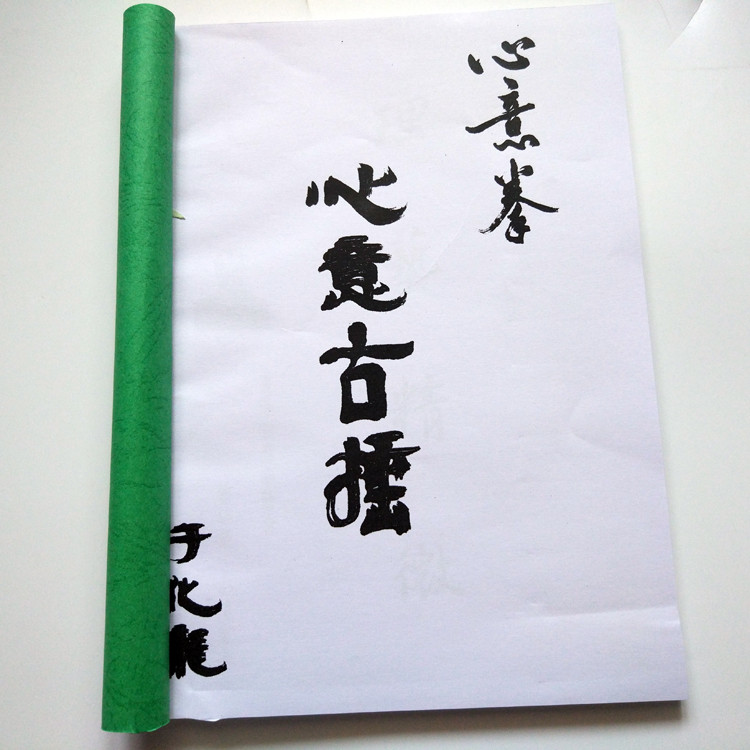 心意拳
心意古捶
于化龍